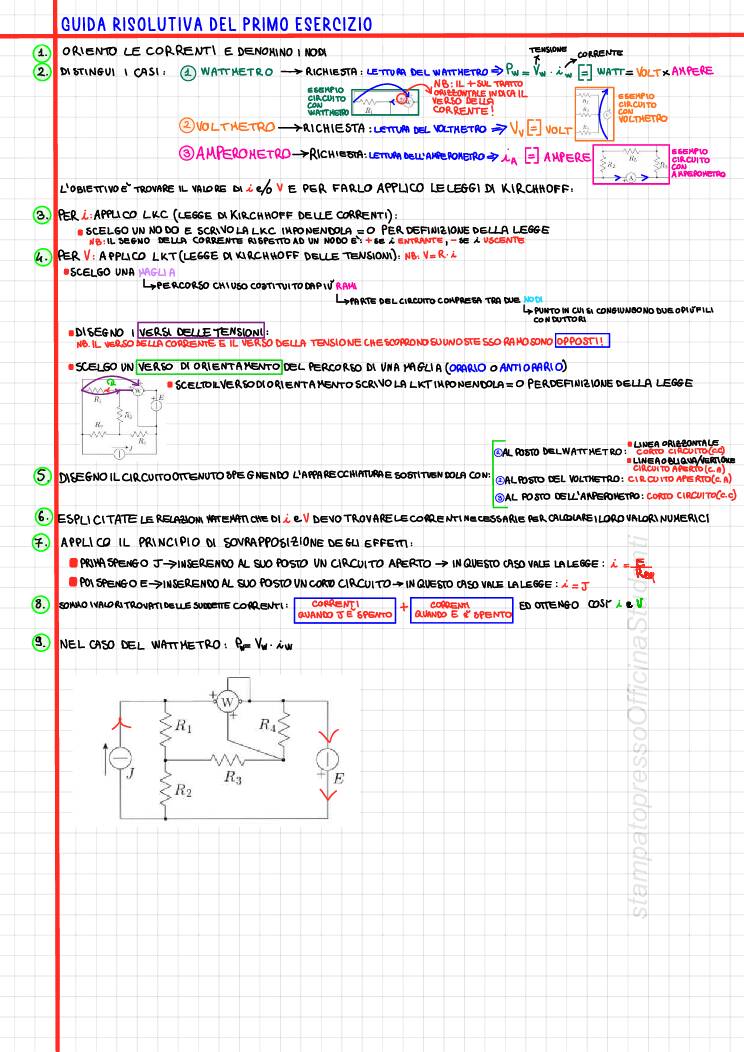 GUIDA RISOLUTIVA DEL PRIMO ESERCIZIO
1. ORIENTO LE CORRENTI E DENOMINO I NODI
TENSIONE CORRENTE
2. DISTINGUI I CASI: ① WATTMETRO → RICHIESTA: LETTURA DEL WATTMETRO ⇒ Pw = Vw · iw [=] WATT = VOLT × AMPERE
ESEMPIO CIRCUITO CON WATTMETRO
NB: IL + SUL TRATTO ORIZZONTALE INDICA IL VERSO DELLA CORRENTE!
② VOLTMETRO → RICHIESTA: LETTURA DEL VOLTMETRO ⇒ Vv [=] VOLT
ESEMPIO CIRCUITO CON VOLTMETRO
③ AMPEROMETRO → RICHIESTA: LETTURA DELL'AMPEROMETRO ⇒ iA [=] AMPERE
ESEMPIO CIRCUITO CON AMPEROMETRO
L'OBIETTIVO E' TROVARE IL VALORE DI i e/o V E PER FARLO APPLICO LE LEGGI DI KIRCHHOFF:
3. PER i: APPLICO LKC (LEGGE DI KIRCHHOFF DELLE CORRENTI):
SCELGO UN NODO E SCRIVO LA LKC IMPONENDOLA = 0 PER DEFINIZIONE DELLA LEGGE
NB: IL SEGNO DELLA CORRENTE RISPETTO AD UN NODO E': + se i ENTRANTE, - SE i USCENTE
4. PER V: APPLICO LKT (LEGGE DI KIRCHHOFF DELLE TENSIONI): NB: V = R · i
SCELGO UNA MAGLIA
↳ PERCORSO CHIUSO COSTITUITO DA PIU' RAMI
↳ PARTE DEL CIRCUITO COMPRESA TRA DUE NODI
↳ PUNTO IN CUI SI CONGIUNGONO DUE O PIU' FILI
CONDUTTORI
DISEGNO I VERSI DELLE TENSIONI:
NB. IL VERSO DELLA CORRENTE E IL VERSO DELLA TENSIONE CHE SCORRONO SU UNO STESSO RAMO SONO OPPOSTI!
SCELGO UN VERSO DI ORIENTAMENTO DEL PERCORSO DI UNA MAGLIA (ORARIO O ANTIORARIO)
SCELTO IL VERSO DI ORIENTAMENTO SCRIVO LA LKT IMPONENDOLA = 0 PER DEFINIZIONE DELLA LEGGE
5. DISEGNO IL CIRCUITO OTTENUTO SPEGNENDO L'APPARECCHIATURA E SOSTITUENDOLA CON:
① AL POSTO DEL WATTMETRO:
LINEA ORIZZONTALE
CORTO CIRCUITO (C.C)
LINEA OBLIQUA/VERTICALE
CIRCUITO APERTO (C.A)
② AL POSTO DEL VOLTMETRO: CIRCUITO APERTO (C.A)
③ AL POSTO DELL'AMPEROMETRO: CORTO CIRCUITO (C.C)
6. ESPLICITATE LE RELAZIONI MATEMATICHE DI i e V DEVO TROVARE LE CORRENTI NECESSARIE PER CALCOLARE I LORO VALORI NUMERICI
7. APPLICO IL PRINCIPIO DI SOVRAPPOSIZIONE DEGLI EFFETTI:
PRIMA SPENGO J → INSERENDO AL SUO POSTO UN CIRCUITO APERTO → IN QUESTO CASO VALE LA LEGGE: i = E/Req
POI SPENGO E → INSERENDO AL SUO POSTO UN CORTO CIRCUITO → IN QUESTO CASO VALE LA LEGGE: i = J
8. SOMMO I VALORI TROVATI DELLE SUDDETTE CORRENTI: CORRENTI QUANDO J E' SPENTO + CORRENTI QUANDO E E' SPENTO ED OTTENGO COSI' i e V
9. NEL CASO DEL WATTMETRO: Pw = Vw · iw
W
R1
R4
J
R3
E
R2
stampatopressoOfficinaStudenti